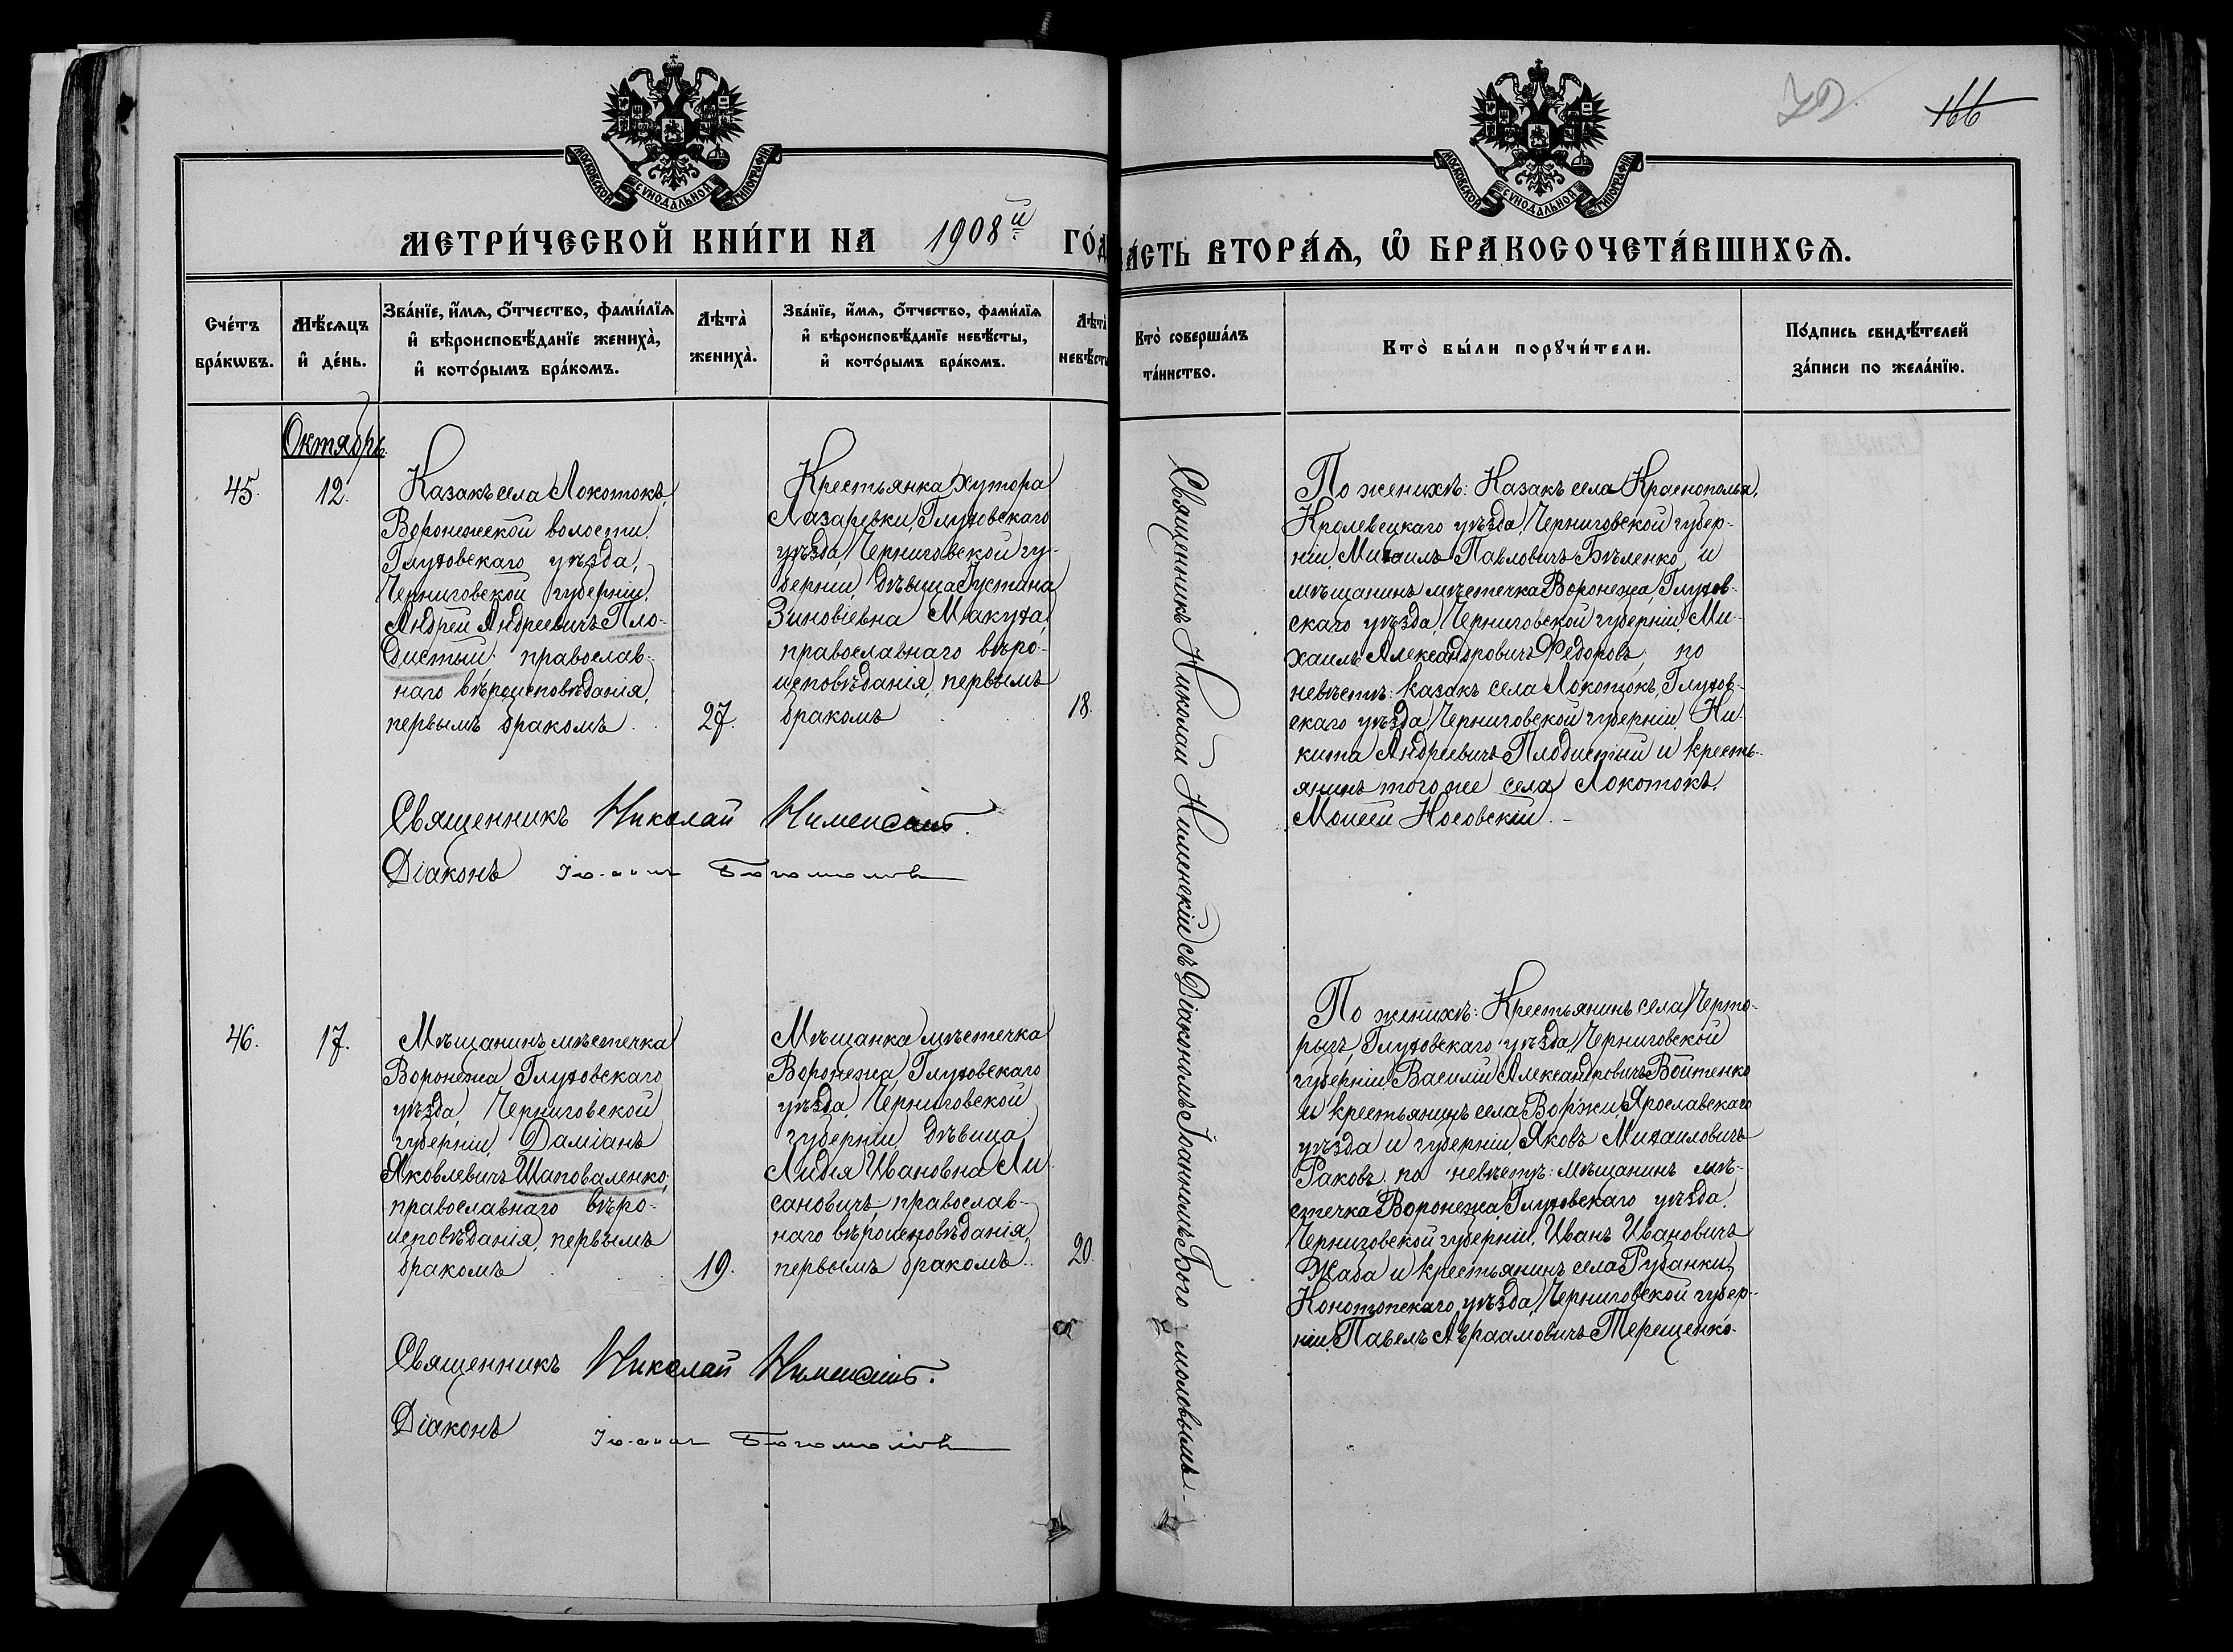 70
166
МОСКОВСКОЙ СѴНОДАЛЬНОЙ ТИПОГРАФІИ
МОСКОВСКОЙ СѴНОДАЛЬНОЙ ТИПОГРАФІИ
МЕТРИ́ЧЕСКОЙ КНИ́ГИ НА 1908й ГО́Д
ЧА́СТЬ ВТОРА́Ѧ, Ѽ БРАКОСОЧЕТА́ВШИХСѦ.
Сче́тъ
бра́кѡвъ.
Мѣ́сѧцъ
и҆ де́нь.
Зва́нїе, и҆́мѧ, ѻ҆́тчество, фами́лїѧ
и҆ вѣроисповѣ́данїе жениха̀,
и҆ кото́рымъ бра́комъ.
Лѣта̀
жениха̀.
Зва́нїе, и҆́мѧ, ѻ҆́тчество, фами́лїѧ
и҆ вѣроисповѣ́данїе невѣ́сты,
и҆ кото́рымъ бра́комъ.
Лѣта̀
невѣ́сты
Кто̀ соверша́лъ
та́инство.
Кто̀ бы́ли порꙋчи́тели.
По́дпись свидѣ́телей
за́писи по жела́нїю.
Октябрь
45.
12.
Казакъ села Локотокъ,
Воронежской волости,
Глуховскаго уѣзда,
Черниговской губерніи,
Андрей Андреевичъ Пло-
дистый, православ-
наго вѣроисповѣданія,
первымъ бракомъ.
27.
Крестьянка хутора
Лазаревки, Глуховскаго
уѣзда, Черниговской гу-
берніи, дѣвица Густина
Зиновіевна Макуха,
православнаго вѣро-
исповѣданія, первымъ
бракомъ
18.
Священникъ Николай
Діаконъ Іоаннъ Богомоловъ
Священникъ Николай Нименскій съ Діакономъ Іоанномъ Богомоловымъ.
По женихѣ: Казакъ села Краснополья,
Кролевецкаго уѣзда, Черниговской губер-
ніи, Михаилъ Павловичъ Бѣленко и
мѣщанинъ мѣстечка Воронежа, Глухов-
скаго уѣзда, Черниговской губерніи, Ми-
хаилъ Александровичъ Федоровъ, по
невѣстѣ: казакъ села Локотокъ, Глухов-
скаго уѣзда, Черниговской губерніи, Ни-
кита Андреевичъ Плодистый и кресть-
янинъ того же села Локотокъ,
Моисей Носовскій.
46.
17.
Мѣщанинъ мѣстечка
Воронежа, Глуховскаго
уѣзда, Черниговской
губерніи, Даміанъ
Яковлевичъ Шаповаленко,
православнаго вѣро-
исповѣданія, первымъ
бракомъ
19.
Мѣщанка мѣстечка
Воронежа, Глуховскаго
уѣзда, Черниговской
губерніи, дѣвица
Лидія Ивановна Ли-
сановичъ, православ-
наго вѣроисповѣданія,
первымъ бракомъ.
20.
Священникъ Николай
Діаконъ Іоаннъ Богомоловъ
По женихѣ: Крестьянинъ села Черто-
рыгъ, Глуховскаго уѣзда, Черниговской
губерніи Василій Александровичъ Войтенко
и крестьянинъ села Воржи, Ярославскаго
уѣзда и губерніи, Яковъ Михаиловичъ
Раковъ, по невѣстѣ: мѣщанинъ мѣ-
стечка Воронежа, Глуховскаго уѣзда,
Черниговской губерніи, Иванъ Ивановичъ
Жаба и крестьянинъ села Рубанки,
Конотопскаго уѣзда, Черниговской губер-
ніи, Павелъ Авраамовичъ Терещенко.